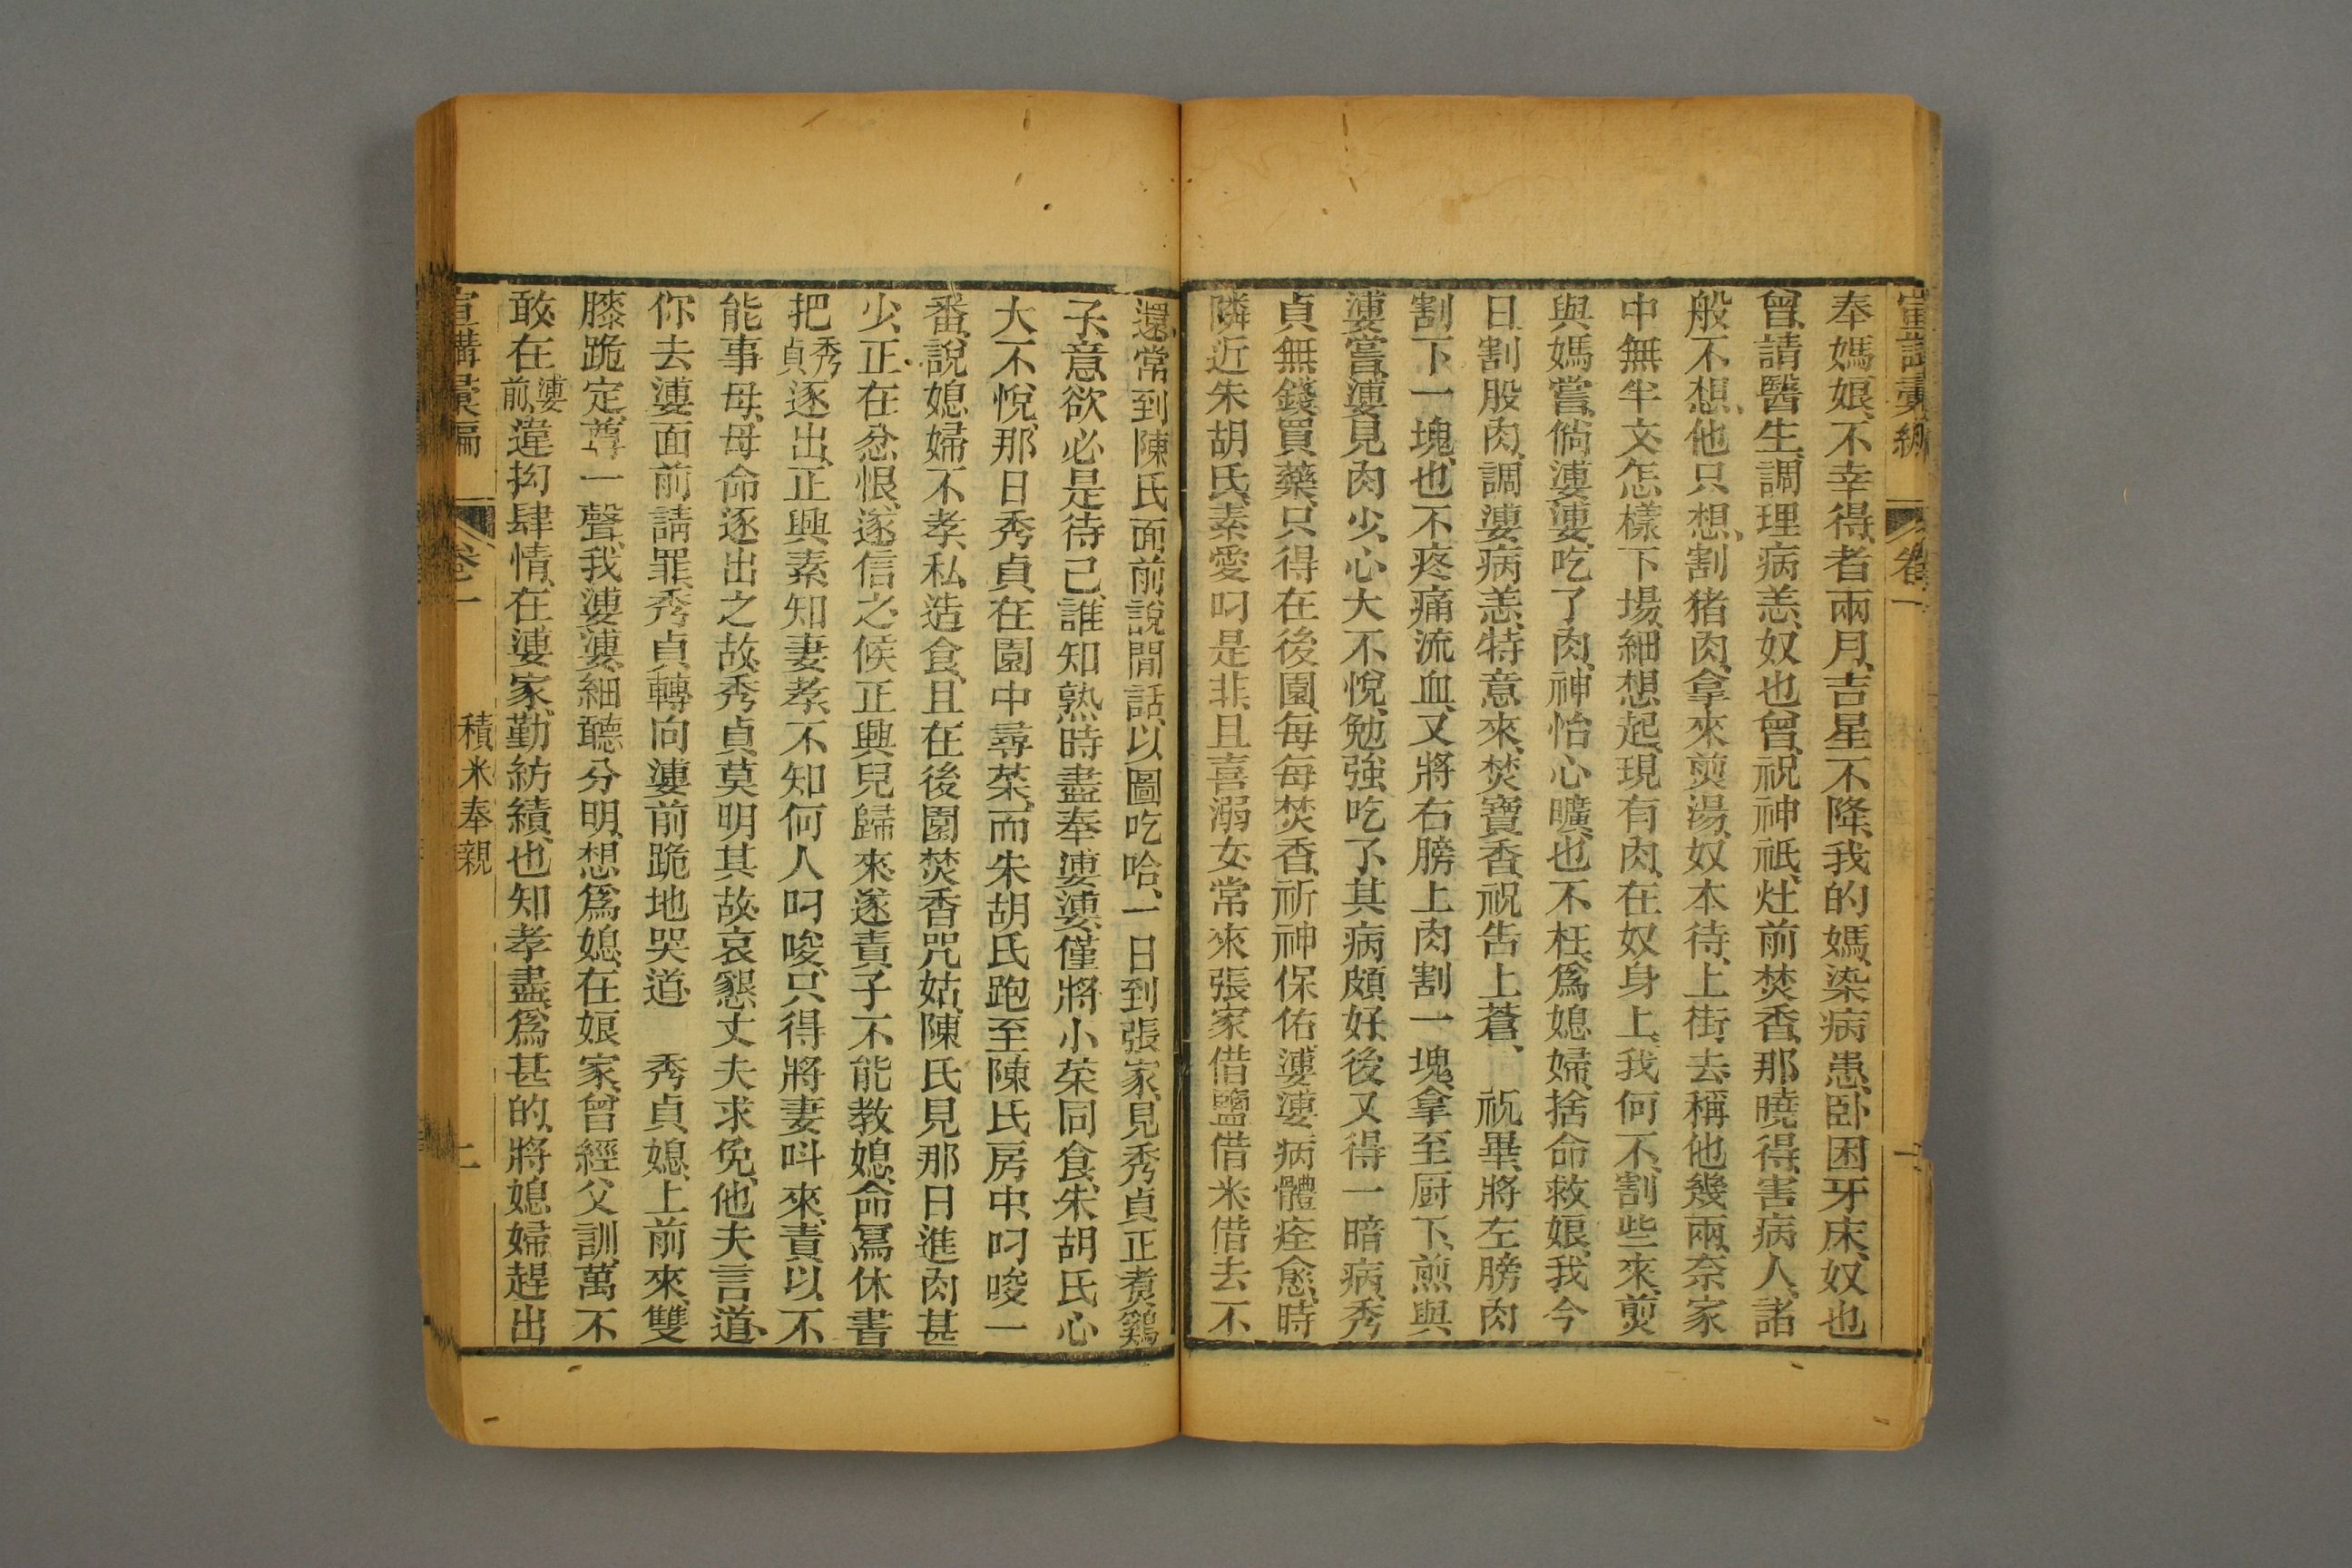 宣講彙編 卷一
奉媽娘、不幸得、者兩月、吉星不降、我的媽、染病患、卧困牙床、奴也
曾、請醫生、調理病恙、奴也曾、祝神祇、灶前焚香、那曉得、害病人、諸
般不想、他只想、割猪肉、拿來煎湯、奴本待、上街去、稱他幾兩、奈家
中無半文、怎樣下場、細想起、現有肉、在奴身上、我何不、割些來、煎
與媽嘗、倘漊漊、吃了肉、神怡心曠、也不枉、爲媳婦、捨命救娘、我今
日、割股肉、調漊病恙、特意來、焚寶香、祝告上蒼、　祝畢、將左膀肉
割下一塊、也不疼痛流血、又將右膀上肉割一塊、拿至厨下、煎與
漊嘗、漊見肉少、心大不悅、勉強吃了、其病頗好、後又得一暗病、秀
貞無錢買藥、只得在後園、每每焚香、祈神保佑漊漊病體痊愈、時
隣近朱胡氏、素愛叼是非、且喜溺女、常來張家借鹽借米、借去不
還、常到陳氏面前說閒話、以圖吃哈、一日到張家、見秀貞正煑鷄
子、意欲必是待己、誰知熟時盡奉漊漊、僅將小菜同食、朱胡氏心
大不悅、那日秀貞在園中尋菜、而朱胡氏跑至陳氏房中、叼唆一
番、說媳婦不孝、私造食、且在後園焚香咒姑、陳氏見那日進肉甚
少、正在忿恨、遂信之、候正興兒歸來、遂責子不能教媳、命寫休書
把秀貞逐出、正興素知妻孝、不知何人叼唆、只得將妻呌來、責以不
能事母、母命逐出之故、秀貞莫明其故、哀懇丈夫求免、他夫言道、
你去漊面前請罪、秀貞轉向漊前跪地哭道　秀貞媳、上前來、雙
膝跪定、尊一聲、我漊漊、細聽分明、想爲媳、在娘家、曾經父訓、萬不
敢、在漊前、違拗肆情、在漊家、勤紡績、也知孝盡、爲甚的、將媳婦趕出
宣講彙編 卷一 積米奉親 二